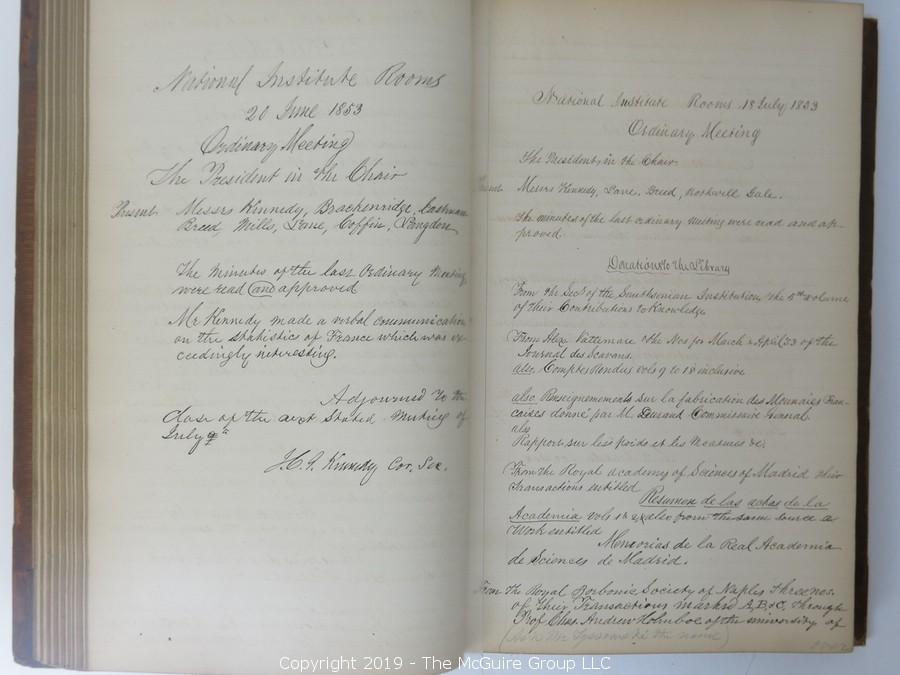 National Institute Rooms
20 June 1853
Ordinary Meeting
The President in the Chair
Present Messrs Kennedy, Brackenridge, Eastman
Breed, Mills, Lane, Coffin, Langdon
The Minutes of the last Ordinary Meeting
were read and approved
Mr Kennedy made a verbal communication
on the statistics of France which was ex-
ceedingly interesting.
Adjourned to the
close of the next Stated Meeting of
July
J.C.G. Kennedy Cor. Sec.
National Institute Rooms 18 July 1853
Ordinary Meeting
The President, in the Chair
Present Messrs Kennedy, Lane, Breed, Rothwell Gale.
The minutes of the last ordinary meeting were read and ap-
proved.
Donations to the Library
From the Secy of the Smithsonian Institution, the 5th volume
of their Contributions to Knowledge
From Alex Vattemare the Nos for March & April 53 of the
Journal des Savans.
also Comptes Rendus vols 9 to 18 inclusive
also Renseignements sur la fabrication des Monnaies Fran-
caises donné par M. Durand Commissaire General.
also
Rapport sur les poids et les Mesures &c.
From the Royal Academy of Sciences of Madrid their
Transactions entitled
Resumen de las actas de la
Academia vols also from the same source a
Work entitled
Memorias de la Real Academia
de Sciences de Madrid.
From The Royal Borbonic Society of Naples three nos.
of their Transactions marked A, B & C, through
Prof Chas. Andrew Holmboe of the university of
(Ask Mr the name)
Copyright 2019 - The McGuire Group LLC